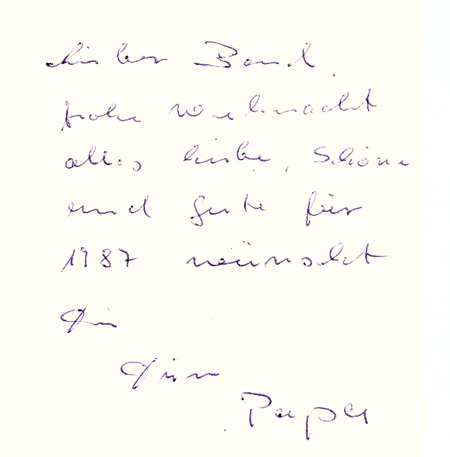 Lieber Bernd,
frohe Weihnacht
alles Liebe, Schöne
und Gute für
1987 wünscht
Dir
Dein
Papa